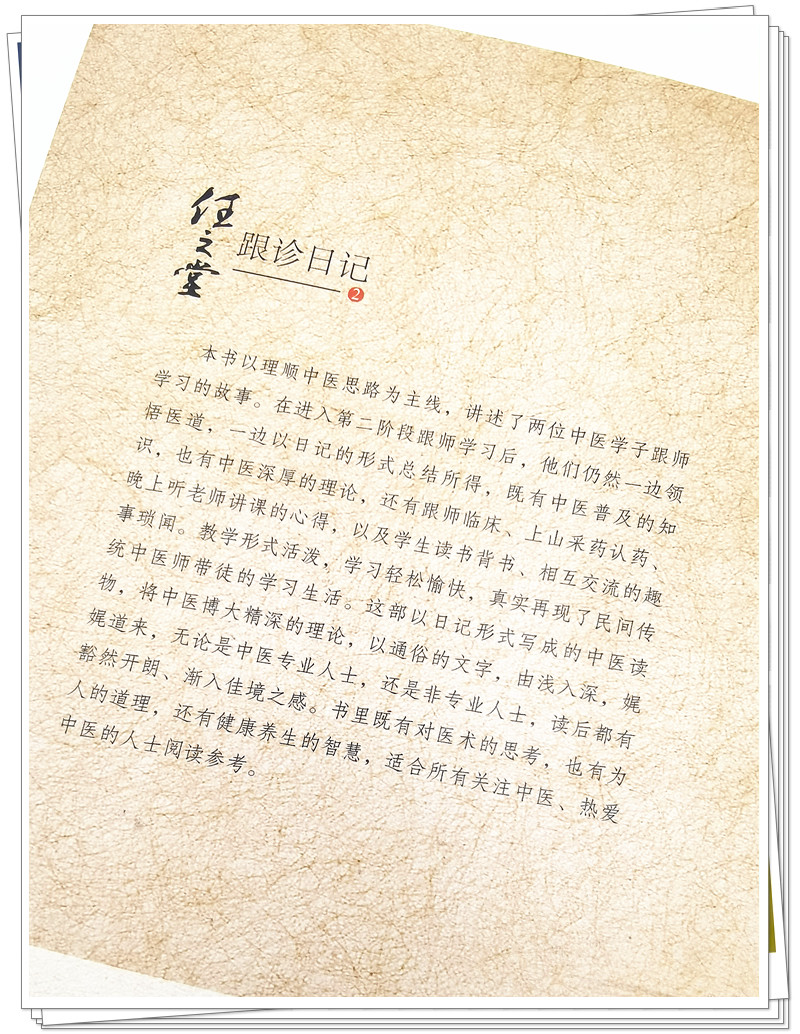 任之堂
跟诊日记
2
本书以理顺中医思路为主线，讲述了两位中医学子跟师
学习的故事。在进入第二阶段跟师学习后，他们仍然一边领
悟医道，一边以日记的形式总结所得，既有中医普及的知
识，也有中医深厚的理论，还有跟师临床、上山采药认药、
晚上听老师讲课的心得，以及学生读书背书、相互交流的趣
事琐闻。教学形式活泼，学习轻松愉快，真实再现了民间传
统中医师带徒的学习生活。这部以日记形式写成的中医读
物，将中医博大精深的理论，以通俗的文字，由浅入深，娓
娓道来，无论是中医专业人士，还是非专业人士，读后都有
豁然开朗、渐入佳境之感。书里既有对医术的思考，也有为
人的道理，还有健康养生的智慧，适合所有关注中医、热爱
中医的人士阅读参考。